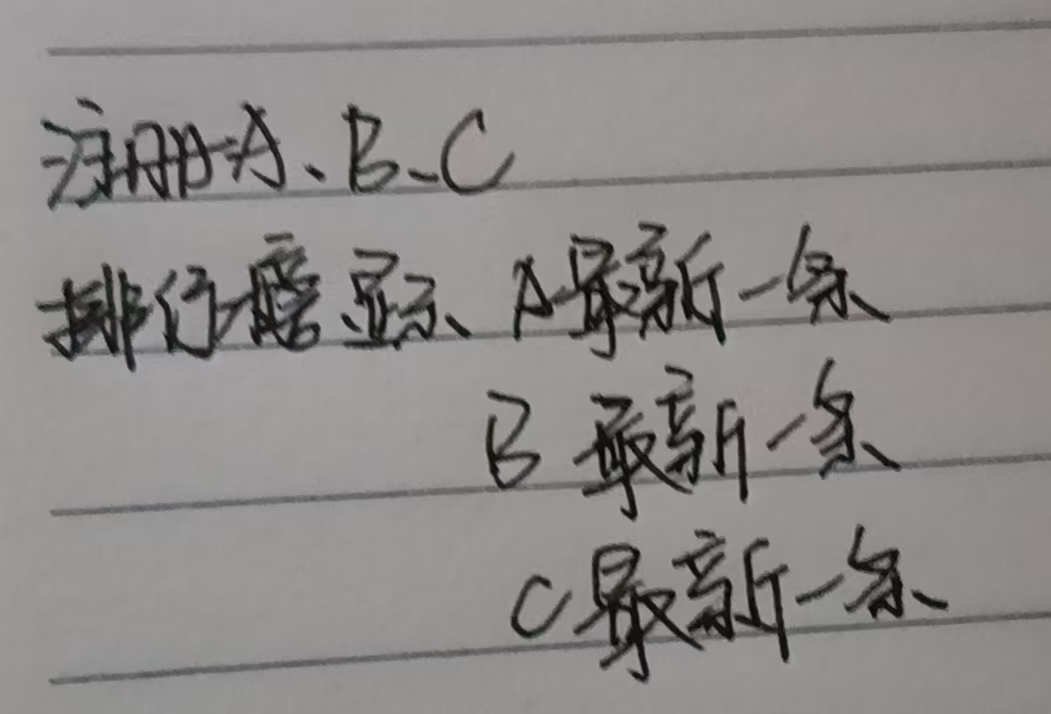 注册A、B、C
排行榜显示 A最新一条
B 最新一条
C最新一条